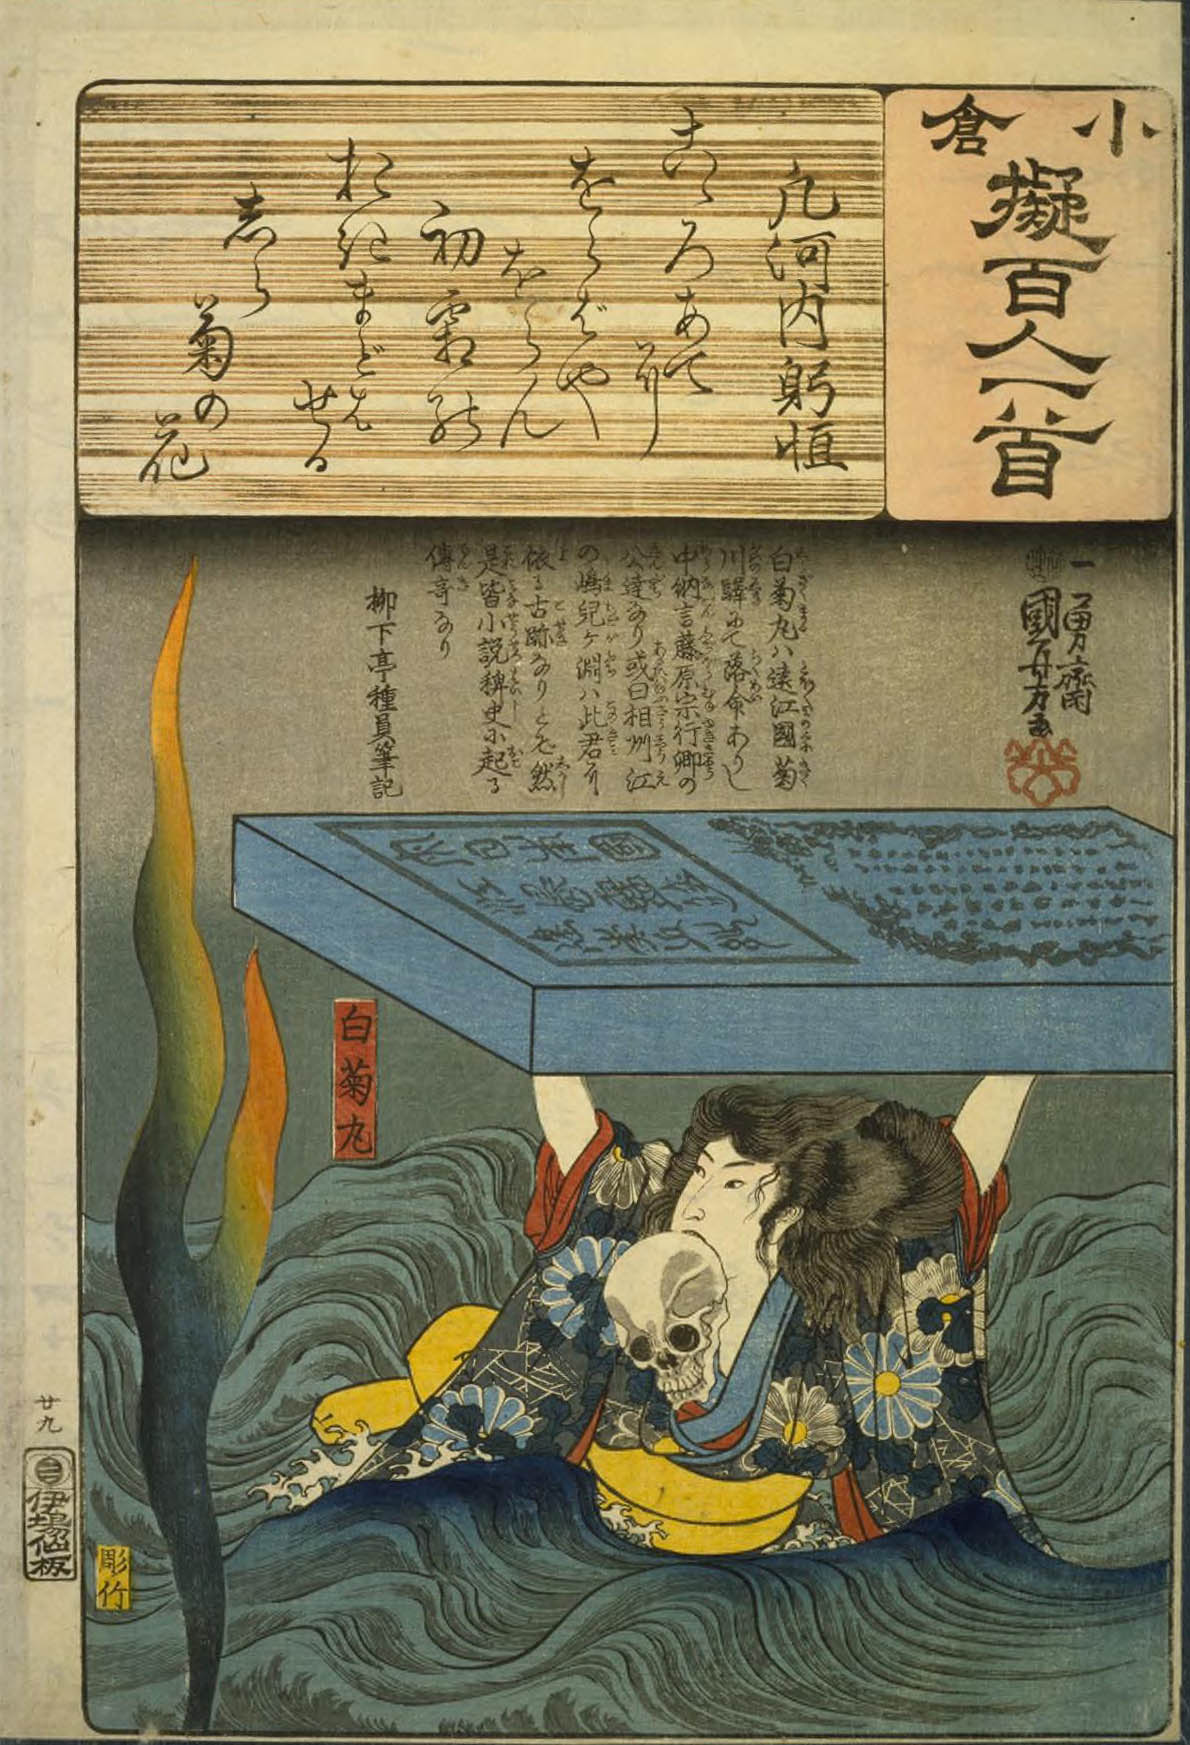 小倉
擬百人一首
凡河内躬恒
こゝろあてに
をらばやをらん
初霜の
おきまどはせる
しら菊の花
一勇齋
國芳画
白菊丸ハ遠江國菊
川驛にて落命ありし
中納言藤原宗行卿の
公達なり或曰相州江
の嶋兒ヶ淵ハ此君に
依る古跡なりとぞ然
是皆小説稗史に起る
傳奇なり
柳下亭種員筆記
白菊丸
廿九
伊場仙板
彫竹